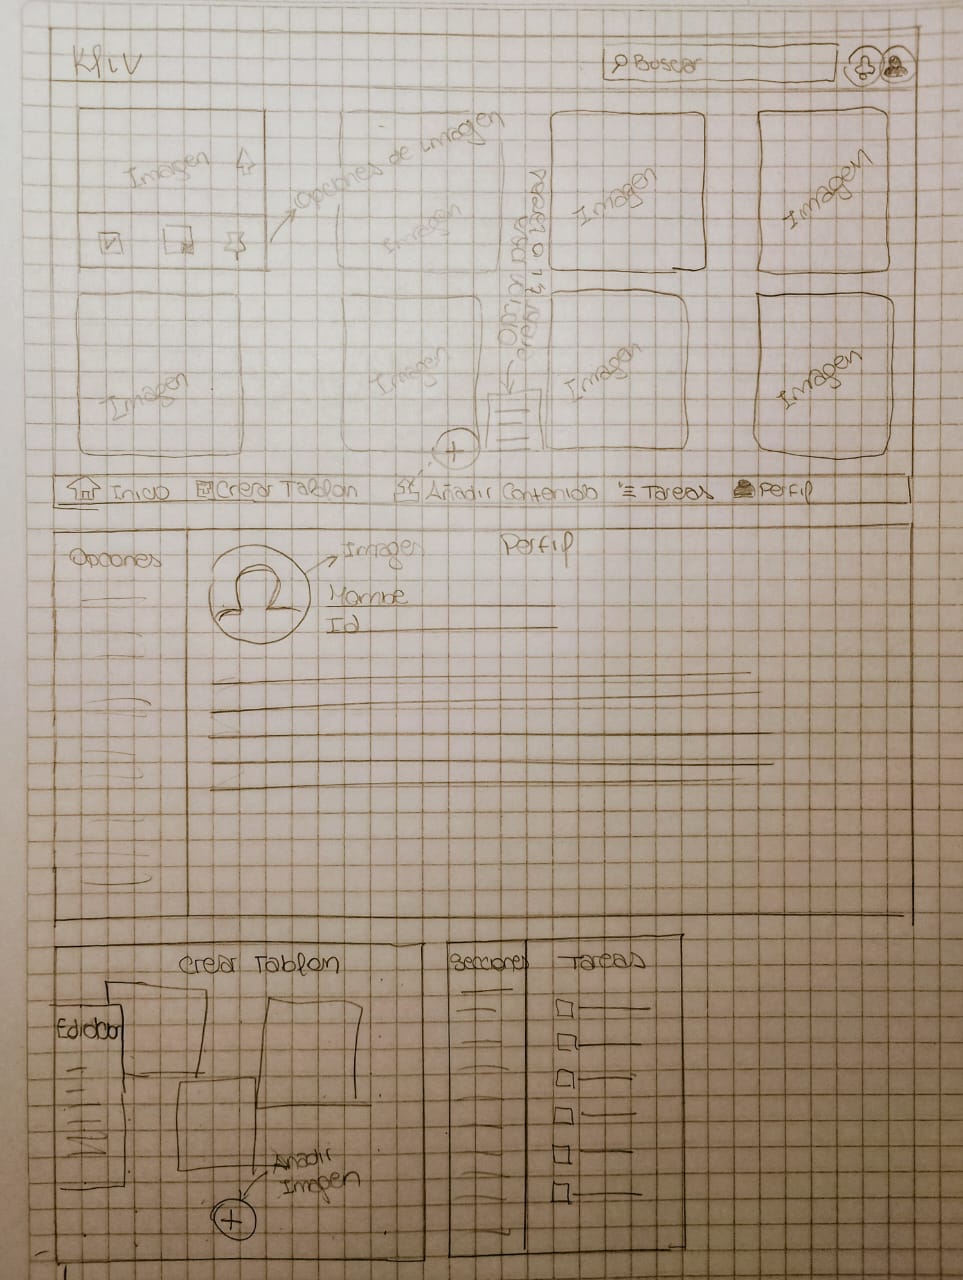 Kliv
Buscar
Imagen
Opciones de imagen
Imagen
Imagen
Imagen
Imagen
Imagen
Imagen
Imagen
Inicio
Crear Tablon
Añadir Contenido
Tareas
Perfil
Opciones
Imagen
Perfil
Nombre
Id
Crear Tablon
Editor
Añadir
Imagen
Secciones
Tareas